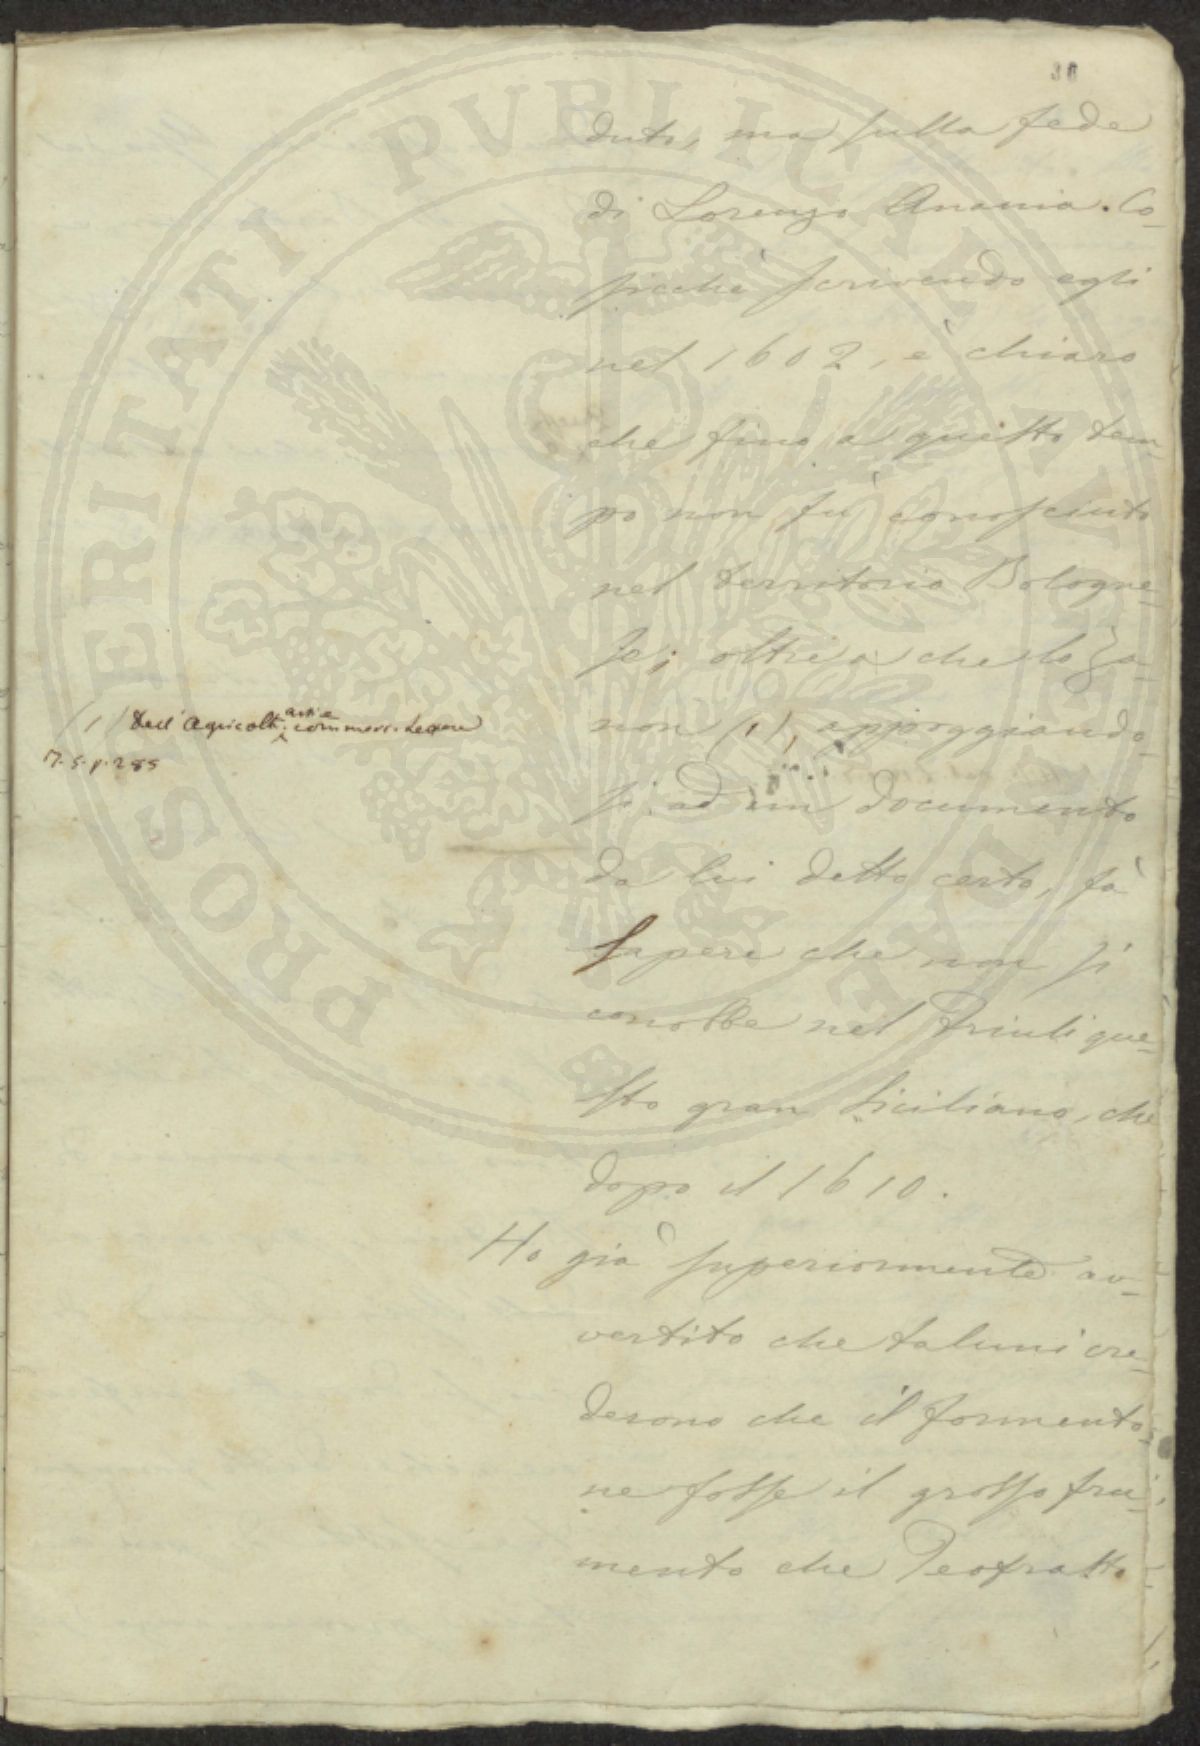 30
duto, ma sulla fede
di Lorenzo Anania. Co-
sicchè scrivendo egli
nel 1602, è chiaro
che fino a questo tem-
po non fù conosciuto
nel territorio Bologne-
se; oltre a che lo Za-
non (1), appoggiando-
si ad un documento
da lui detto certo, fà
sapere che non si
conobbe nel Friuli que-
sto gran Siciliano, che
dopo il 1610.
Ho già superiormente av-
vertito che taluni cre-
derono che il formento-
ne fosse il grosso fru-
mento che Teofrasto
(1) Dell' Agricolt. arti e commerc.
T. 5. p. 285
PROSPERITATI PUBLICAE AUGENDAE